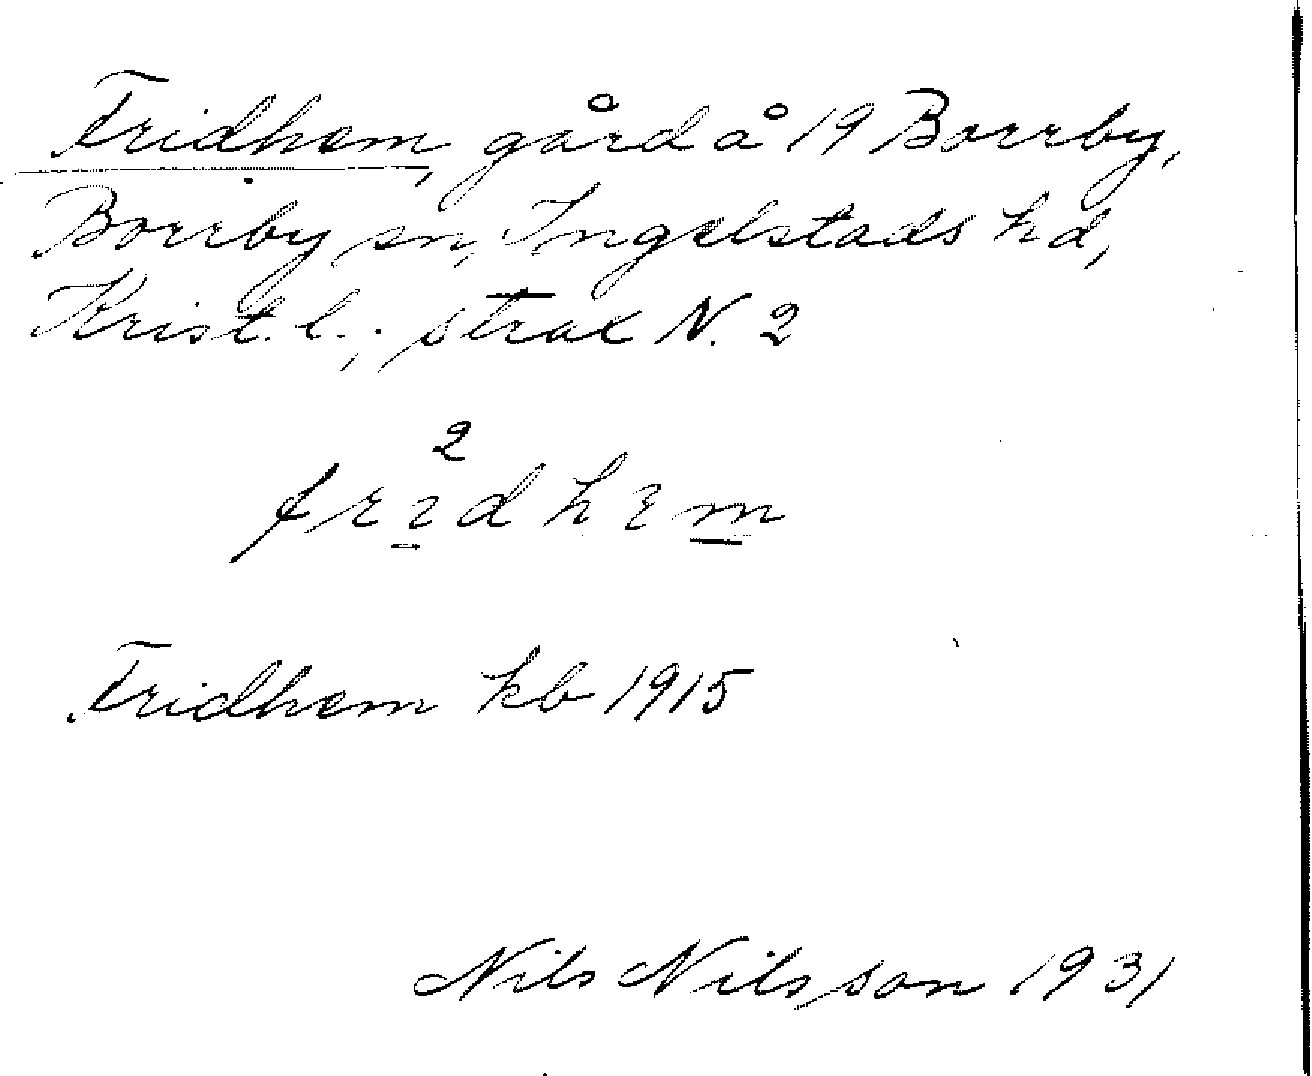 Fridhem, gård å 19 Borrby,
Borrby sn, Ingelstads hd,
Krist. l.; strax N. 2
Fridhem kb 1915
Nils Nilsson 1931